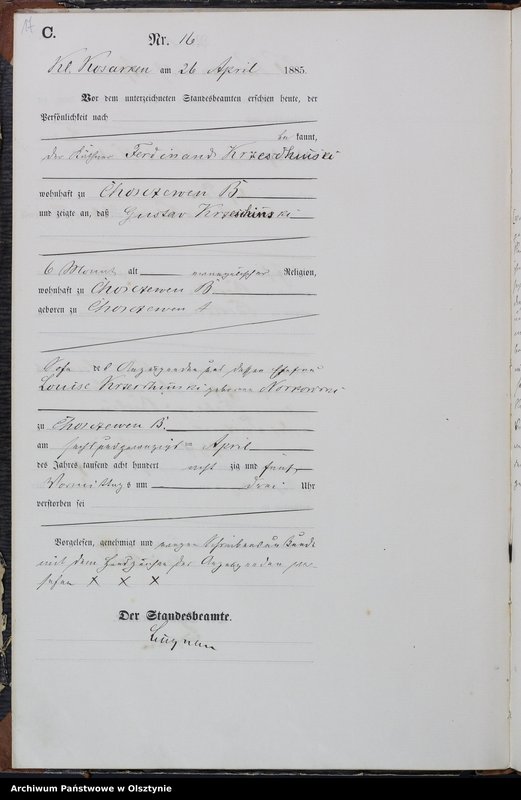 17
C.
Nr. 16
Kl. Kosarken am 26 April 1885.
Vor dem unterzeichneten Standesbeamten erschien heute, der
Persönlichkeit nach
be kannt,
der Käthner Ferdinand Krzeschinski
wohnhaft zu Chosczewen B
und zeigte an, daß Gustav Krzeschinski
6 Monat alt evangelischer Religion,
wohnhaft zu Chosczewen B
geboren zu Chosczewen A
Sohn des Anzeigenden und dessen Ehefrau
Louise Krzeschinski geborene
zu Chosczewen B.
am sechsundzwanzigsten April
des Jahres tausend acht hundert acht zig und fünf
Vormittags um drei Uhr
verstorben sei
Vorgelesen, genehmigt und wegen Schreibensunkunde
mit dem Handzeichen des Anzeigenden ver-
sehen X X X
Der Standesbeamte.
Archiwum Państwowe w Olsztynie